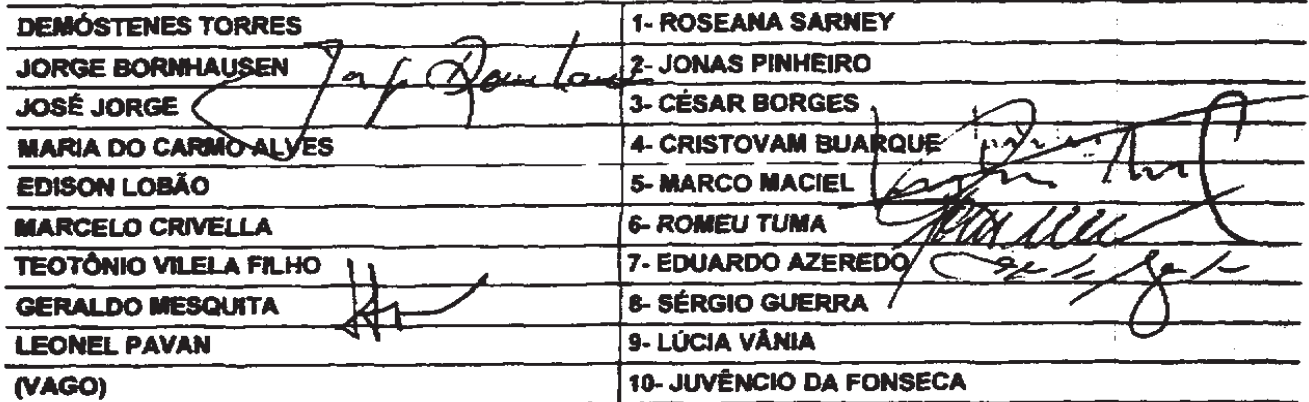 DEMÓSTENES TORRES
1- ROSEANA SARNEY
JORGE BORNHAUSEN
2- JONAS PINHEIRO
JOSÉ JORGE
3- CÉSAR BORGES
MARIA DO CARMO ALVES
4- CRISTOVAM BUARQUE
EDISON LOBÃO
5- MARCO MACIEL
MARCELO CRIVELLA
6- ROMEU TUMA
TEOTÔNIO VILELA FILHO
7- EDUARDO AZEREDO
GERALDO MESQUITA
8- SÉRGIO GUERRA
LEONEL PAVAN
9- LÚCIA VÂNIA
(VAGO)
10- JUVÊNCIO DA FONSECA